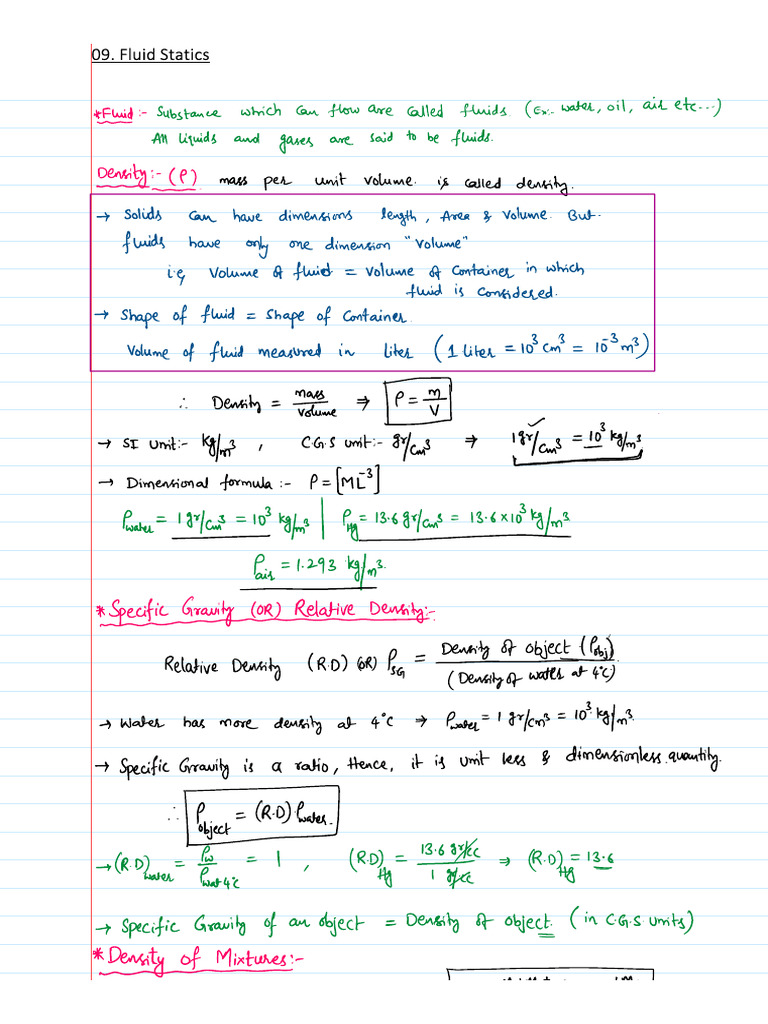 09. Fluid Statics
*Fluid:- Substance which can flow are called fluids (Ex:- water, oil, air etc...)
All liquids and gases are said to be fluids.
Density:- (ρ) mass per unit volume is called density.
→ Solids can have dimensions length, Area & Volume. But
fluids have only one dimension "Volume"
i.e, Volume of fluid = Volume of Container in which
fluid is Considered.
→ Shape of fluid = Shape of Container
Volume of fluid measured in liter (1 liter = 10³ cm³ = 10⁻³ m³)
∴ Density = mass/volume ⇒ ρ = m/V
→ SI Unit:- kg/m³, C.G.S unit:- gr/cm³ ⇒ 1 gr/cm³ = 10³ kg/m³
→ Dimensional formula :- ρ = [ML⁻³]
ρwater = 1 gr/cm³ = 10³ kg/m³ | ρHg = 13.6 gr/cm³ = 13.6 × 10³ kg/m³
ρair = 1.293 kg/m³.
*Specific Gravity (OR) Relative Density:-
Relative Density (R.D) (OR) ρSG = Density of object (ρobj) / (Density of water at 4°C)
→ Water has more density at 4°C → ρwater = 1 gr/cm³ = 10³ kg/m³.
→ Specific Gravity is a ratio, Hence, it is unit less & dimensionless quantity.
∴ ρobject = (R.D) ρwater.
→ (R.D)water = ρw/ρwat 4°C = 1, (R.D)Hg = 13.6 gr/cc / 1 gr/cc ⇒ (R.D)Hg = 13.6
→ Specific Gravity of an object = Density of object. (in C.G.S units)
*Density of Mixtures:-